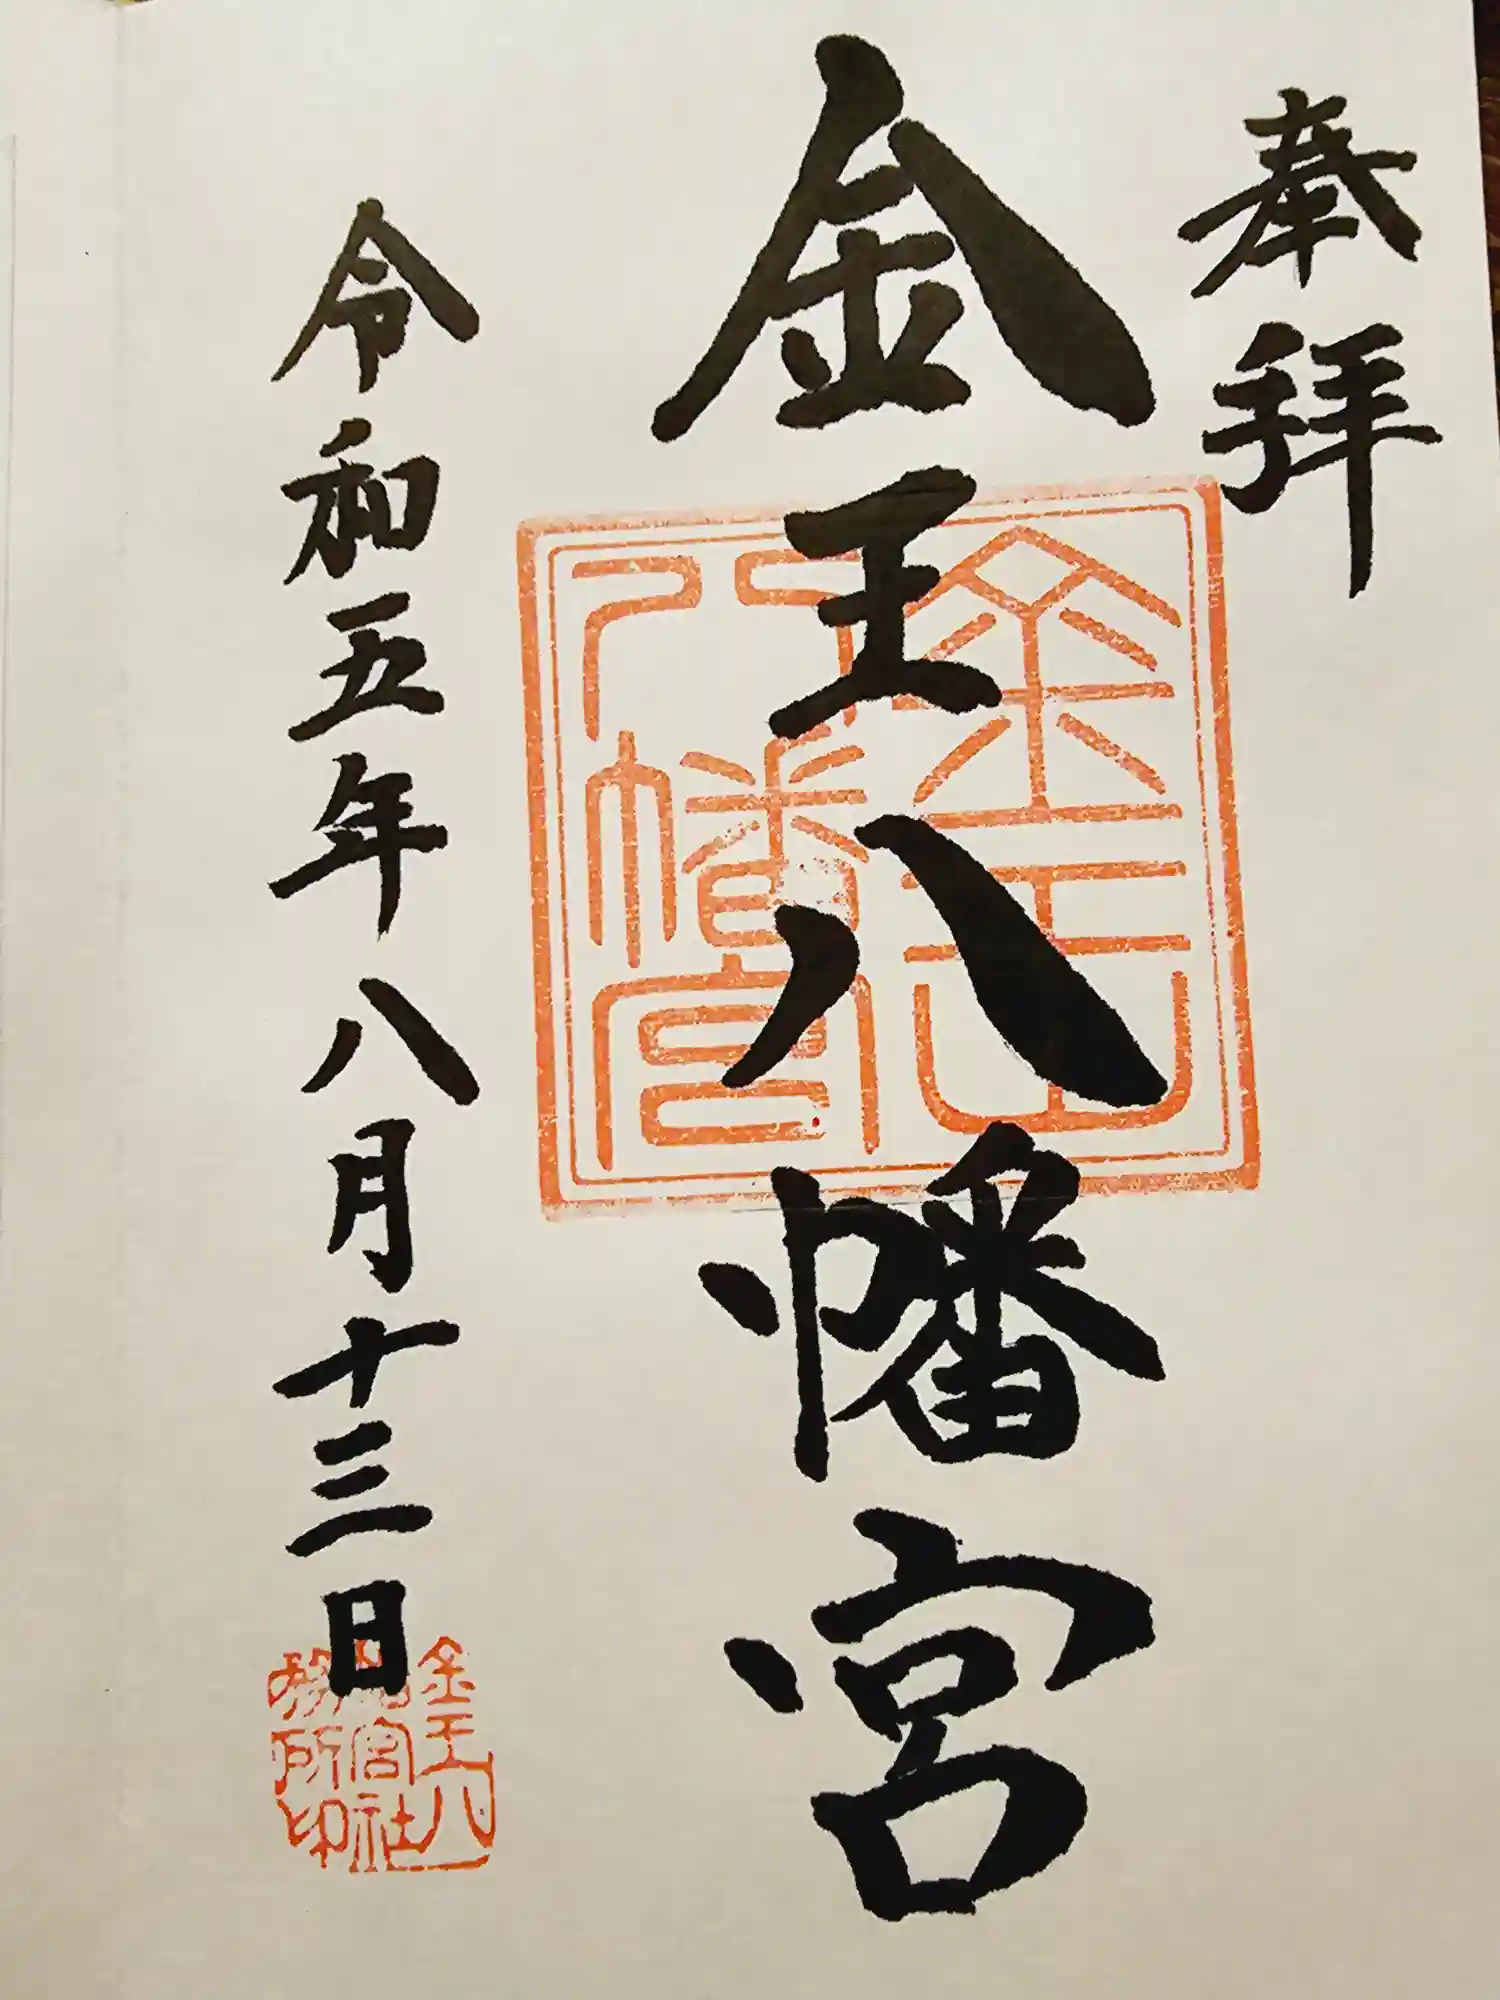 奉拝
金王八幡宮
金王
八幡宮
令和五年八月十三日
金王八
幡宮社
務所印